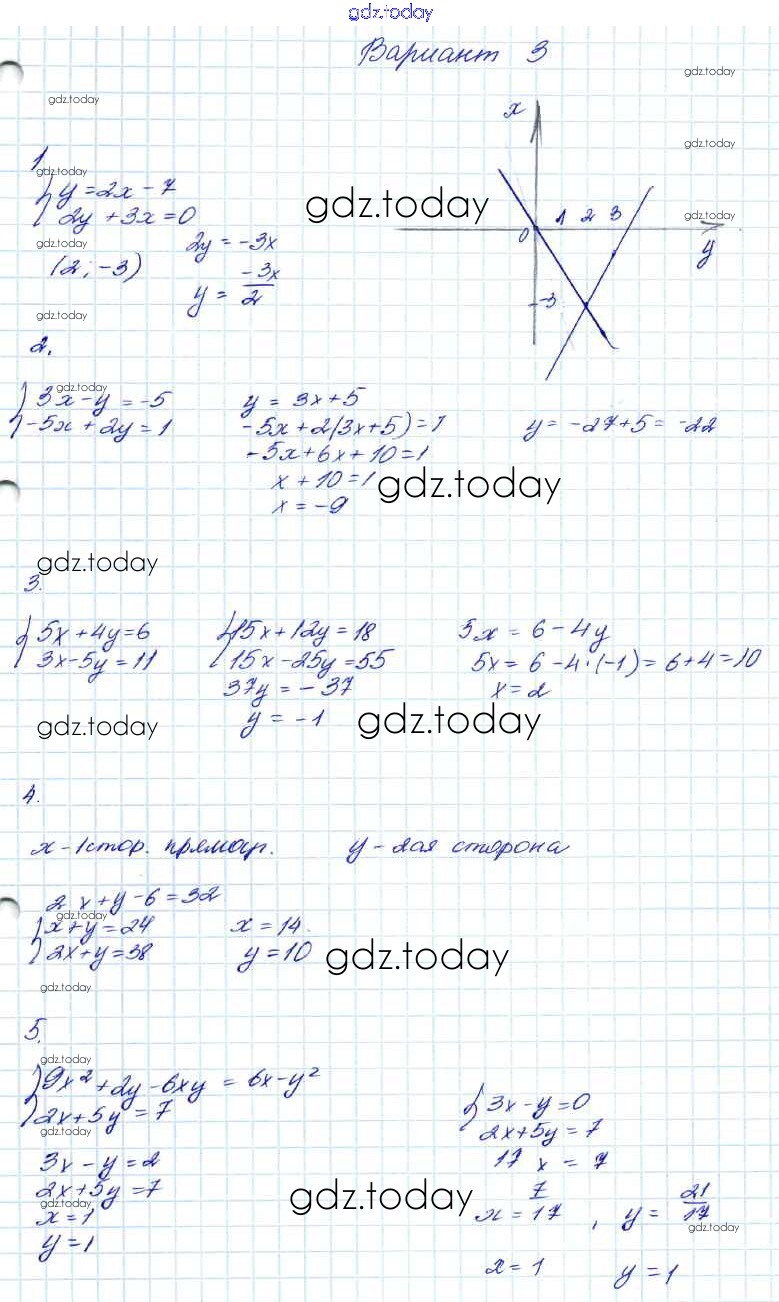 gdz.today
Вариант 3
gdz.today
gdz.today
x
gdz.today
1
gdz.today
y = 2x - 7
2y + 3x = 0
gdz.today
0 1 2 3
gdz.today
y
gdz.today
2y = -3x
(2; -3)
y = -3x/2
-3
gdz.today
2.
gdz.today
3x - y = -5
-5x + 2y = 1
y = 3x + 5
-5x + 2(3x + 5) = 1
-5x + 6x + 10 = 1
x + 10 = 1
x = -9
y = -27 + 5 = -22
gdz.today
gdz.today
3.
5x + 4y = 6
3x - 5y = 11
15x + 12y = 18
15x - 25y = 55
37y = -37
y = -1
5x = 6 - 4y
5x = 6 - 4·(-1) = 6 + 4 = 10
x = 2
gdz.today
gdz.today
4.
x - 1 стор. прямоуг. y - 2ая сторона
2x + y - 6 = 32
gdz.today
x + y = 24
2x + y = 38
x = 14.
y = 10
gdz.today
gdz.today
5.
gdz.today
9x² + 2y - 6xy = 6x - y²
2x + 5y = 7
gdz.today
3x - y = 2
2x + 5y = 7
gdz.today
x = 1
y = 1
gdz.today
3x - y = 0
2x + 5y = 7
17x = 7
x = 7/17, y = 21/17
gdz.today
x = 1 y = 1